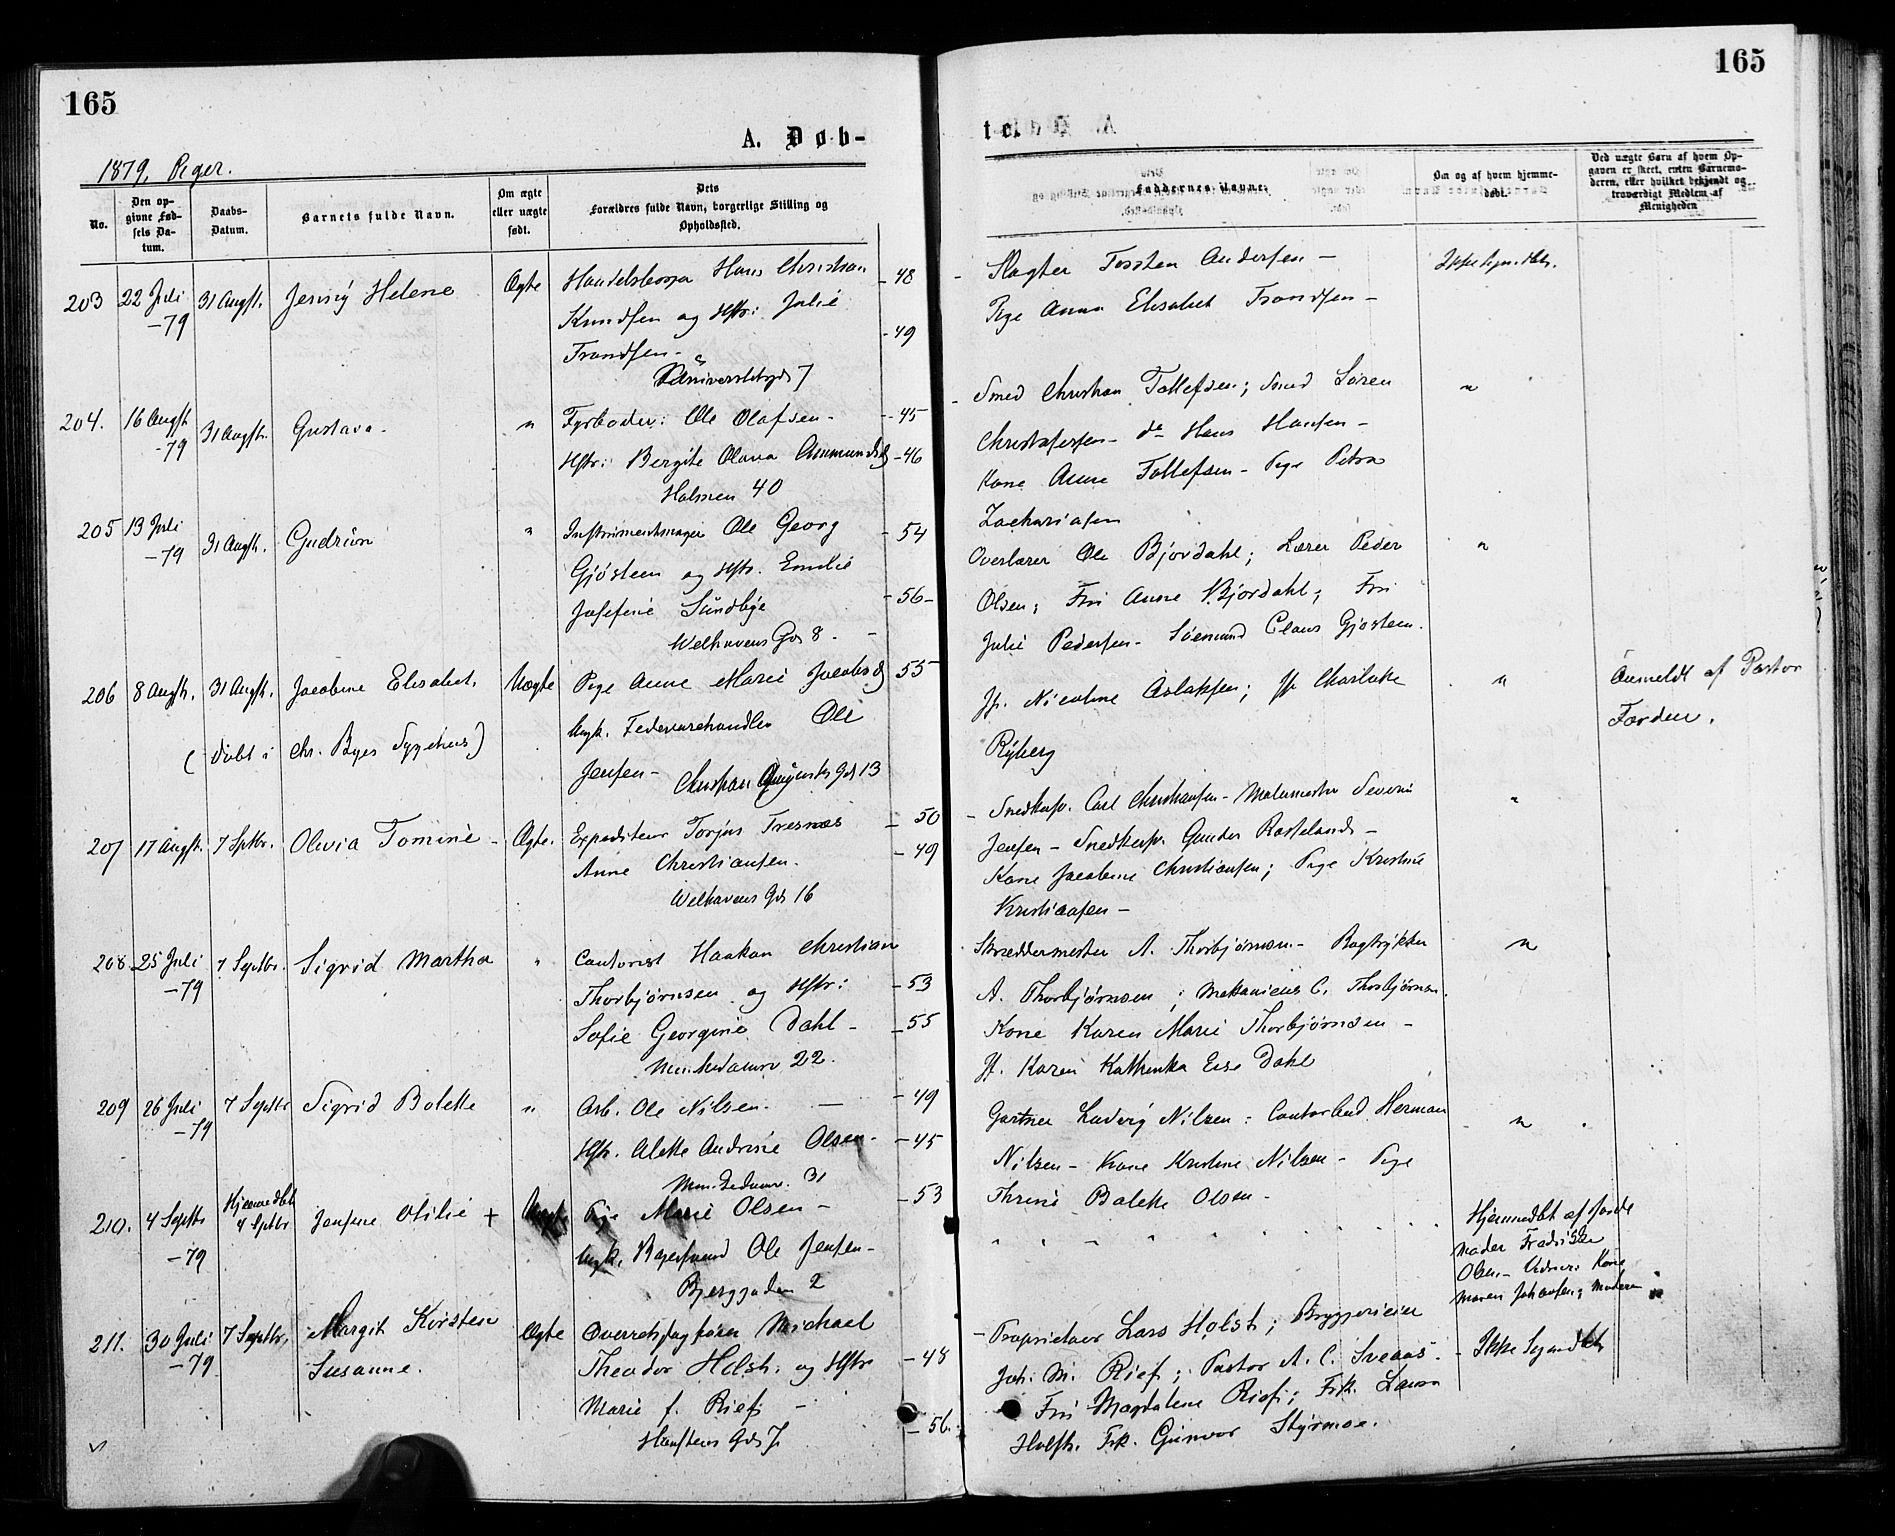 165
165
A. Døb-
te.
1879. Piger.
No.
Den op-
givne Fød-
sels Da-
tum.
Daabs-
Datum.
Barnets fulde Navn.
Om ægte
eller uægte
født.
Dets
Forældres fulde Navn, borgerlige Stilling og
Opholdssted.
Faddernes Navne.
Om og af hvem hjemme-
døbt.
Ved uægte Barn af hvem Op-
gaven er skeet, enten Barnemo-
deren, eller hvilket bekjendt og
troværdigt Medlem af
Menigheden
203 22 Juli 31 Augst. Jenny Helene Ægte Hans Christian -48
-79 Knudsen og Hstr: Julie -49
Trondsen-
Universitetsgd 7
Slagter Torsten Andersen -
Pige Anna Elisabet Trondsen -
204. 16 Augst 31 Augst. Gustava - " Fyrbøder: Ole Olafsen - -45
-79 Hstr: Bergite Olava Ammundsd -46
Holmen 40
Smed Christian Tollefsen; Smed Søren "
Christofersen - do Hans Hansen -
Kone Anne Tollefsen - Pige Petra
Zachariasen
205 13 Juli 31 Augst. Gudrun " Instrumentmager Ole Georg -54
-79 Gjøsteen og Hstr. Emilie
Josefine Sundbye -56-
Welhavens Gd 8. -
Overlærer Ole Bjordahl; Lærer Peder "
Olsen; Fru Anne Bjordahl; Fru
Julie Pedersen - Sømand Claus Gjøsteen.
206 8 Augst. 31 Augst. Jacobine Elisabet. Uægte Pige Anne Marie Jacobsd 55
(døbt i Chr. Byes Sygehus) Ungk. Fedevarehandler Ole
Jensen - Christian Augusts Gd 13
Jf. Nicoline Aslaksen; Jf Charlotte "
Ryberg
Anmeldt af Pastor
Færden.
207 17 Augst. 7 Sptbr. Olivia Tomine - Ægte. Expediteur Torjus Tresnæs -50
Anne Christiansen. -49
Welhavens Gd 16
Snedkersv. Carl Christiansen - Malermester Severin "
Jensen - Snedkersv. Gunder -
Kone Jacobine Christiansen; Pige Kristine
Kristiansen -
208 25 Juli 7 Septbr. Sigrid Martha " Contorist Haakon Christian
-79 Thorbjørnsen og Hstr: -53
Sofie Georgine Dahl - -55
22.
Skræddermester A. Thorbjørnsen - Bogtrykker "
A. Thorbjørnsen; Mekanicus C. Thorbjørnsen.
Kone Karen Marie Thorbjørnsen -
Jf. Karen Kathinka Elise Dahl
209 26 Juli 7 Septbr Sigrid Bolette " Arb. Ole Nilsen. - -49
-79 Hstr. Alette Andrine Olsen - -45
31
Gartner Ludvig Nilsen: Contorbud Herman "
Nilsen - Kone Kristine Nilsen - Pige
Thrine Bolette Olsen -
210. 4 Septbr Hjemmedbt Jensine Otilie + Uægte Pige Marie Olsen - -53
4 Sptbr
-79 Ungk. Bagersvend Ole Jensen -
Bjerggaden 2
Hjemmedbt af Jorde
moder Fredrikke
Olsen - Vidner: Kone
Maren Johansen; Moderen
211. 30 Juli 7 Septbr. Margit Kirsten Ægte Overretssagfører Michael
-79 Susanne. Theodor Holst. og Hstr -48
Marie f. Rief -
Hansteens Gd 7 -56.
- Proprietær Lars Holst; Bryggerieier - Ikke hjmdbt
Joh. M. Rief; Pastor A. C. Sveaas -
Fru Magdalene Rief; Frk. Laura
Holst. Frk. Gunvor Styrmoe.